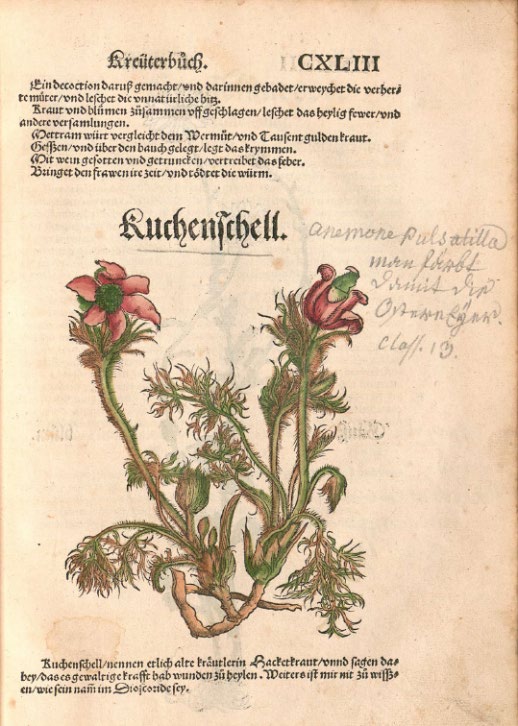 Kreüterbůch. CXLIII
Ein decoction daruß gemacht/vnd darinnen gebadet/erweychet die verher-
te můter/vnd leschet die vnnatürliche hitz.
Kraut vnd blůmen zůsammen vffgeschlagen/leschet das heylig fewer/vnd
andere versamlungen.
Mettram würt vergleicht dem Wermůt/vnd Tausent gulden kraut.
Gessen/vnd über den bauch gelegt/legt das krymmen.
Mit wein gesotten vnd getruncken/vertreibet das feber.
Bringet den frawen ire zeit/vnd tödtet die würm.
Kuchenschell.
anemone pulsatilla
man färbt
damit die
Ostereyer.
Class. 13.
Kuchenschell/nennen etlich alte kräutlerin Hacketkraut/vnnd sagen da-
bey/das es gewaltige krafft hab wunden zů heylen. Weiters ist mir nit zů wiss-
en/wie sein nam̄ im Dioscoride sey.